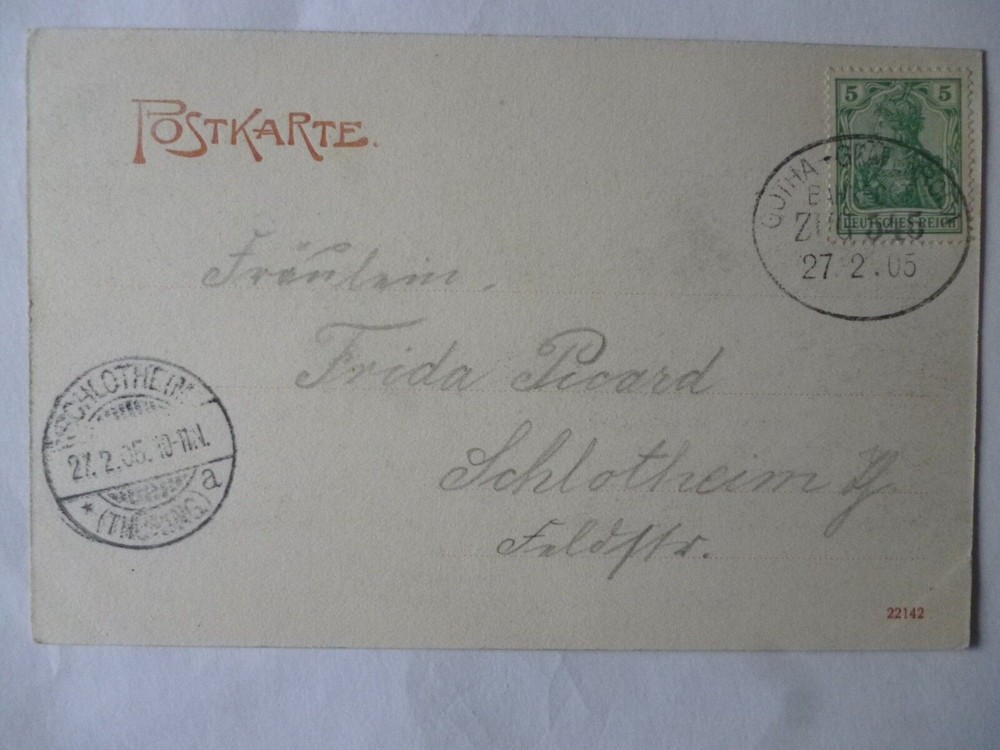 POSTKARTE.
5 5
DEUTSCHES REICH
GOTHA -
ZUG 545
27.2.05
Fräulein.
Frida Picard
Schlotheim Th.
Feldstr.
SCHLOTHEIM
27.2.05. 10-11N.
* (THÜRING.) a
22142